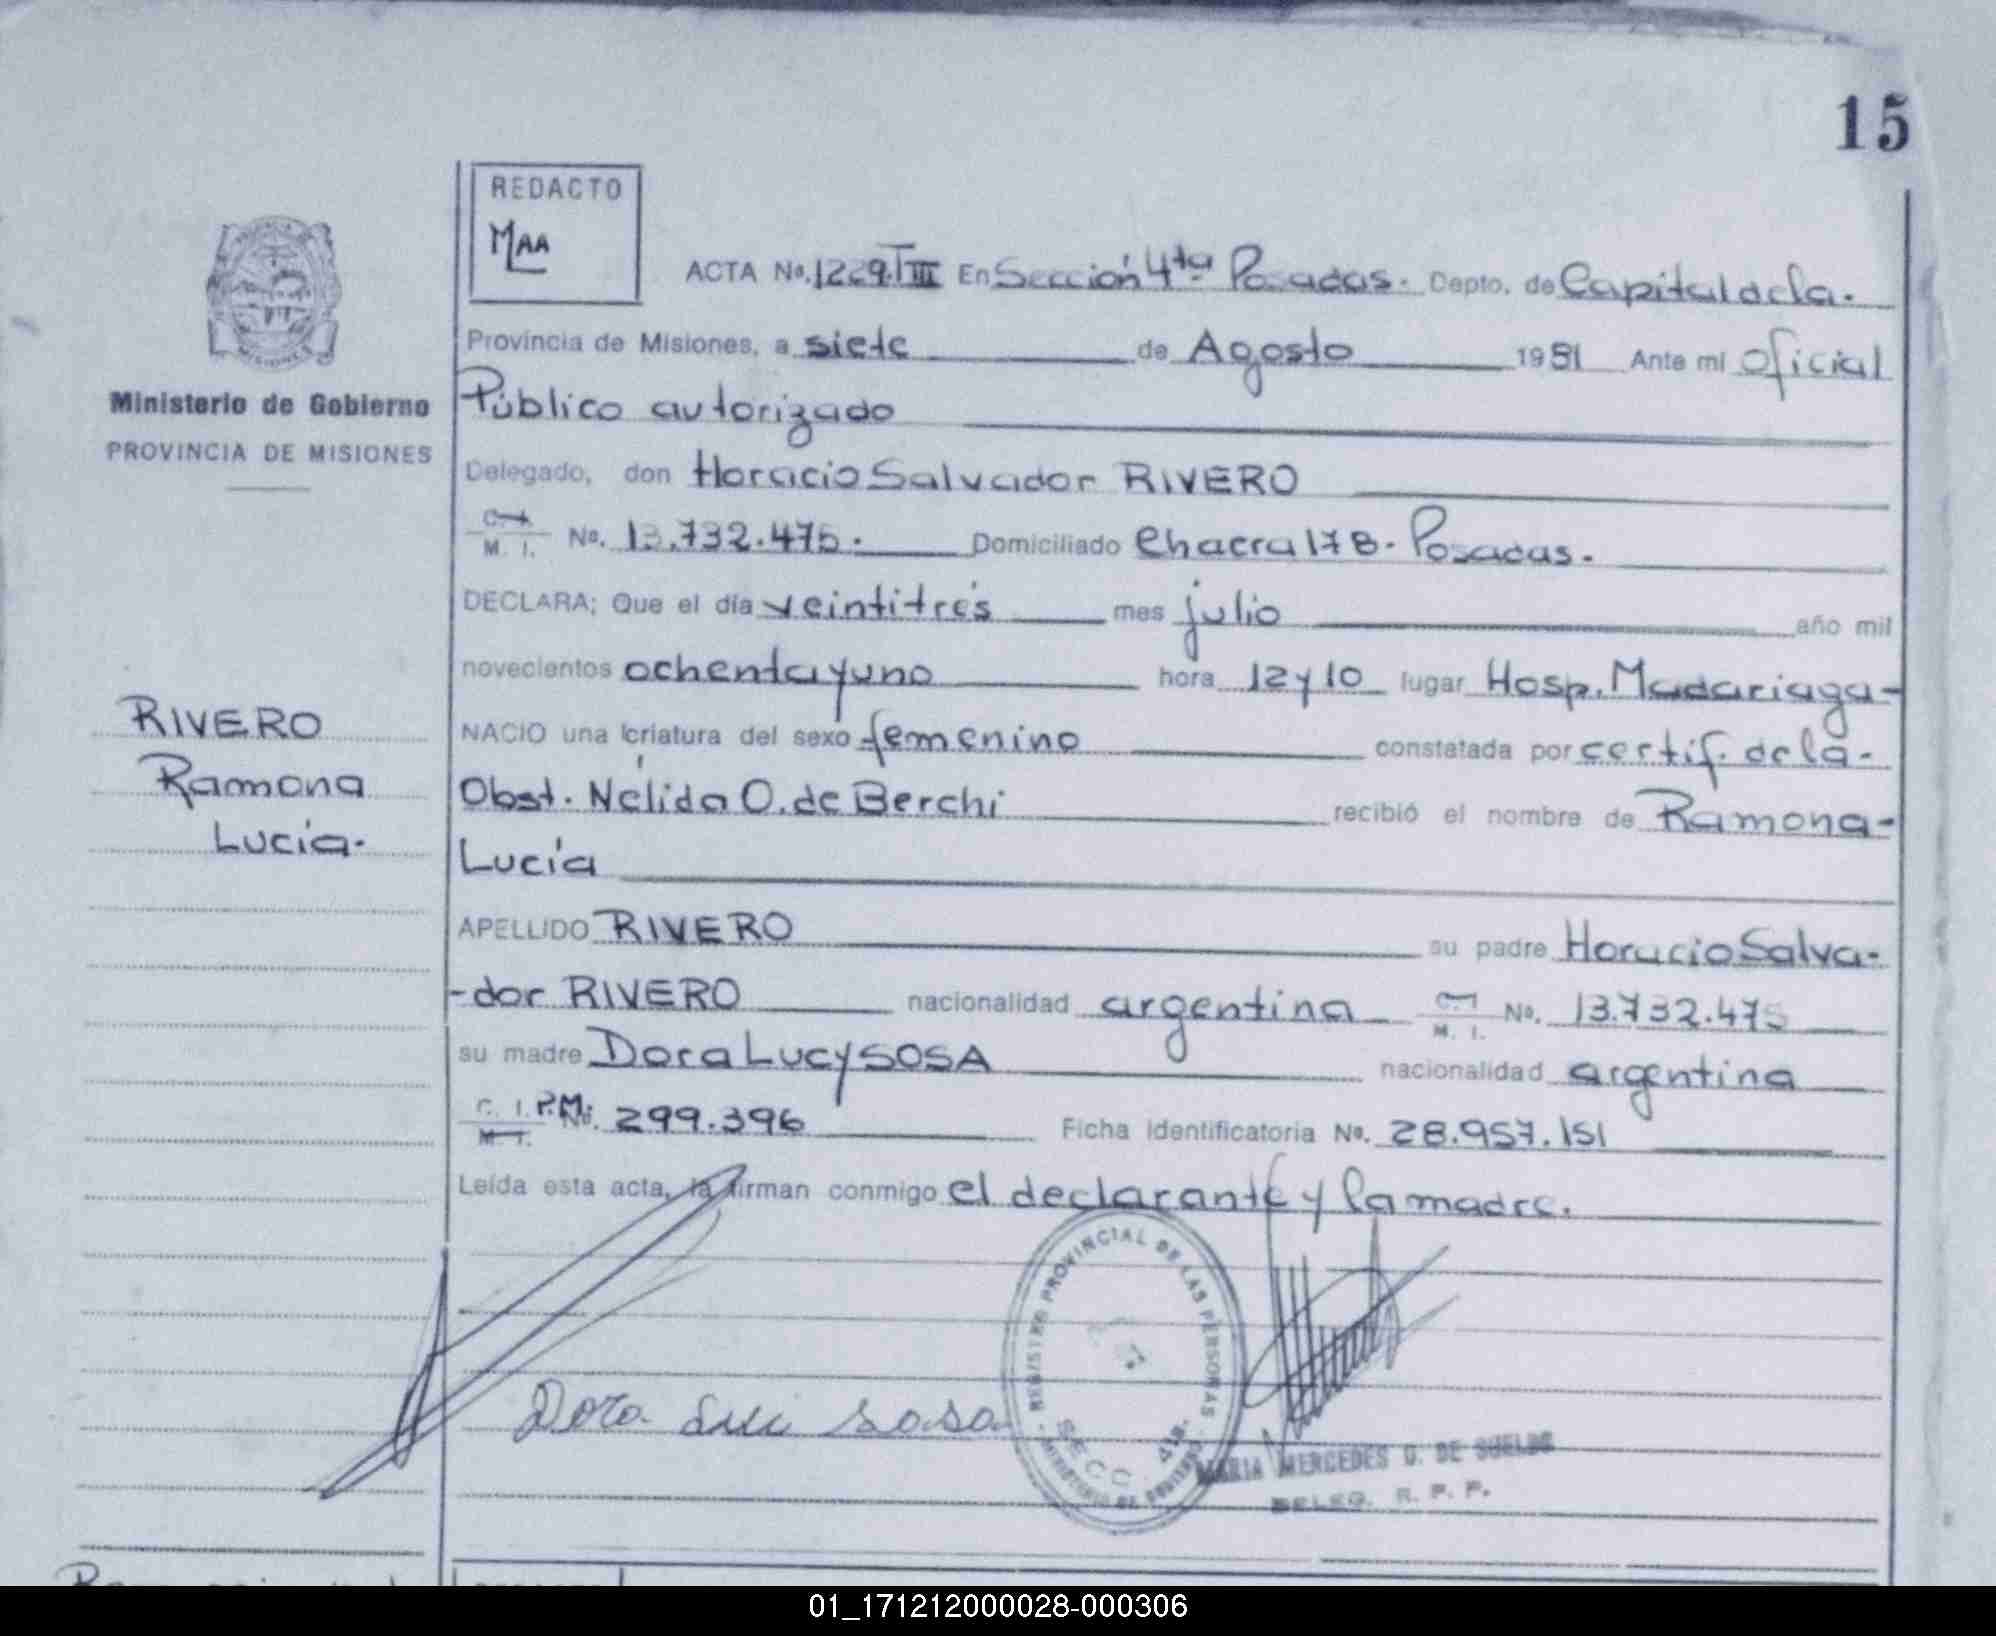 15
REDACTO
MAA
ACTA No. 1229.TIII En Sección 4ta Posadas. Depto. de Capital de la.
Provincia de Misiones, a siete de Agosto 1981 Ante mi oficial
Público autorizado
Delegado, don Horacio Salvador RIVERO
C. I. M. I. No. 13.732.475. Domiciliado Chacra 178. Posadas.
DECLARA; Que el día veintitrés mes julio año mil
novecientos ochenta y uno hora 12 y 10 lugar Hosp. Madariaga-
NACIO una criatura del sexo femenino constatada por certif. de la-
Obst. Nélida O. de Berchi recibió el nombre de Ramona-
Lucía
APELLIDO RIVERO su padre Horacio Salva-
-dor RIVERO nacionalidad argentina C. I. M. I. No. 13.732.475
su madre Dora Lucy SOSA nacionalidad argentina
C. I. M. I. P.M. No. 299.396 Ficha identificatoria No. 28.957.151
Leída esta acta, la firman conmigo el declarante y la madre.
MISIONES
Ministerio de Gobierno
PROVINCIA DE MISIONES
RIVERO
Ramona
Lucía.
Dora Luci Sosa
REGISTRO PROVINCIAL DE LAS PERSONAS
SECC. 4ta.
MINISTERIO DE GOBIERNO
MARIA MERCEDES G. DE SUELDO
DELEG. R. P. P.
01_171212000028-000306